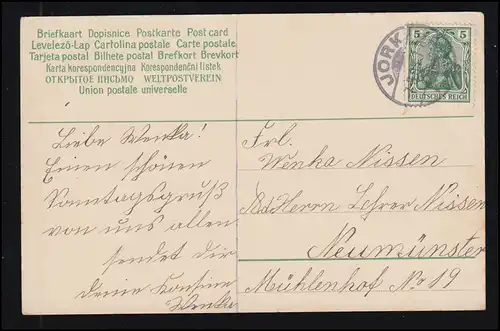 Briefkaart Dopisnice Postkarte Post card
Levelező-Lap Cartolina postale Carte postale
Tarjeta postal Bilhete postal Brefkort Brevkort
Karta korespondencyjna Korespondenční lístek
ОТКРЫТОЕ ПИСЬМО WELTPOSTVEREIN
Union postale universelle
JORK
5 5
DEUTSCHES REICH
Liebe Wenka!
Einen schönen
Sonntagsgruß
von uns allen
sendet dir
deine Kousine
Wenka
Frl.
Wenka Nissen
Herrn Lehrer Nissen
Neumünster
Mühlenhof No 19